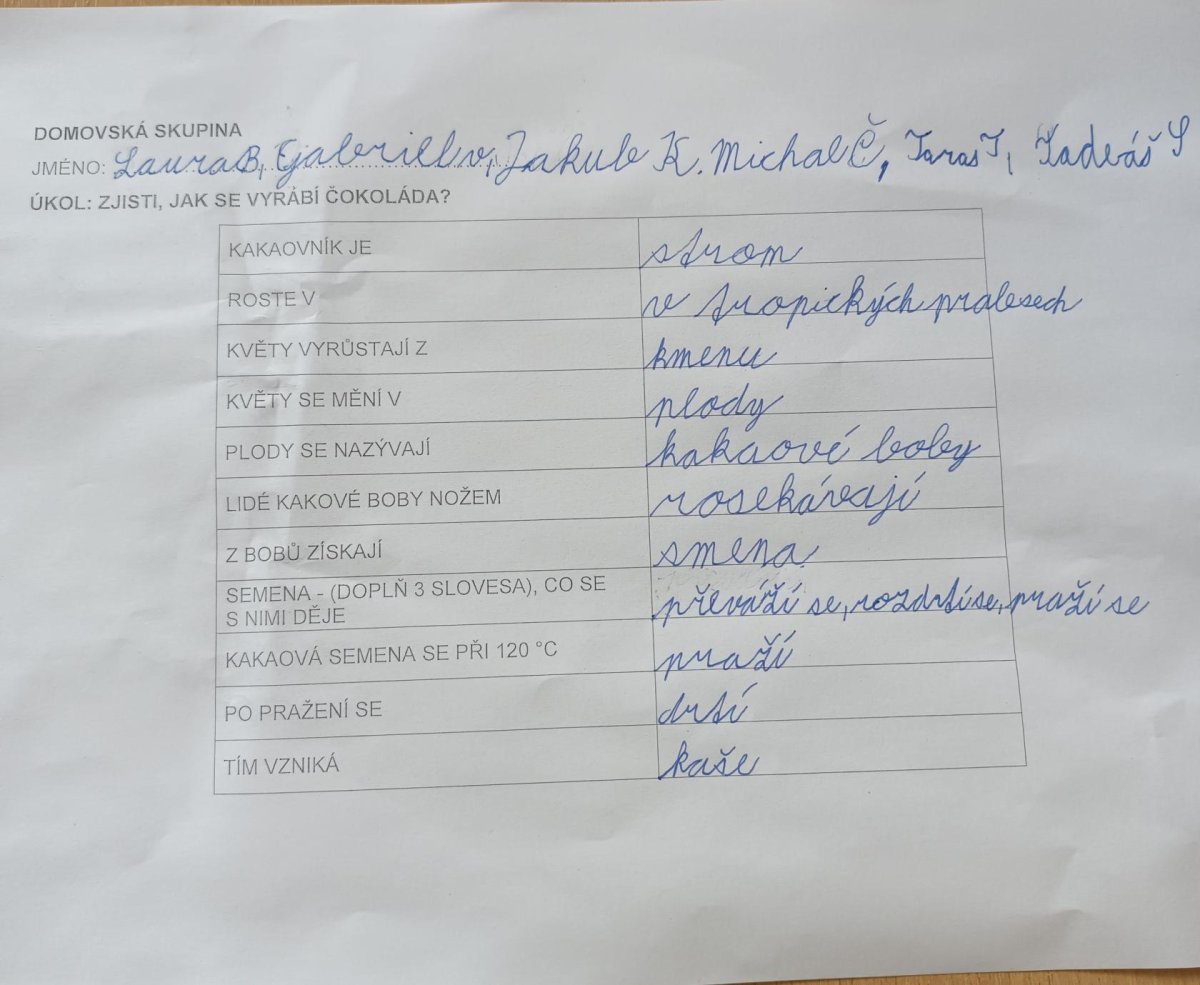 DOMOVSKÁ SKUPINA
JMÉNO: Laura B, Gabriell v, Jakub K. Michal Č, Taras T, Tadeáš S
ÚKOL: ZJISTI, JAK SE VYRÁBÍ ČOKOLÁDA?
KAKAOVNÍK JE strom
ROSTE V v tropických pralesech
KVĚTY VYRŮSTAJÍ Z kmenu
KVĚTY SE MĚNÍ V plody
PLODY SE NAZÝVAJÍ kakaové boby
LIDÉ KAKOVÉ BOBY NOŽEM rosekávají
Z BOBŮ ZÍSKAJÍ smena
SEMENA - (DOPLŇ 3 SLOVESA), CO SE
S NIMI DĚJE převáží se, rozdrtí se, praží se
KAKAOVÁ SEMENA SE PŘI 120 °C praží
PO PRAŽENÍ SE drtí
TÍM VZNIKÁ kaše